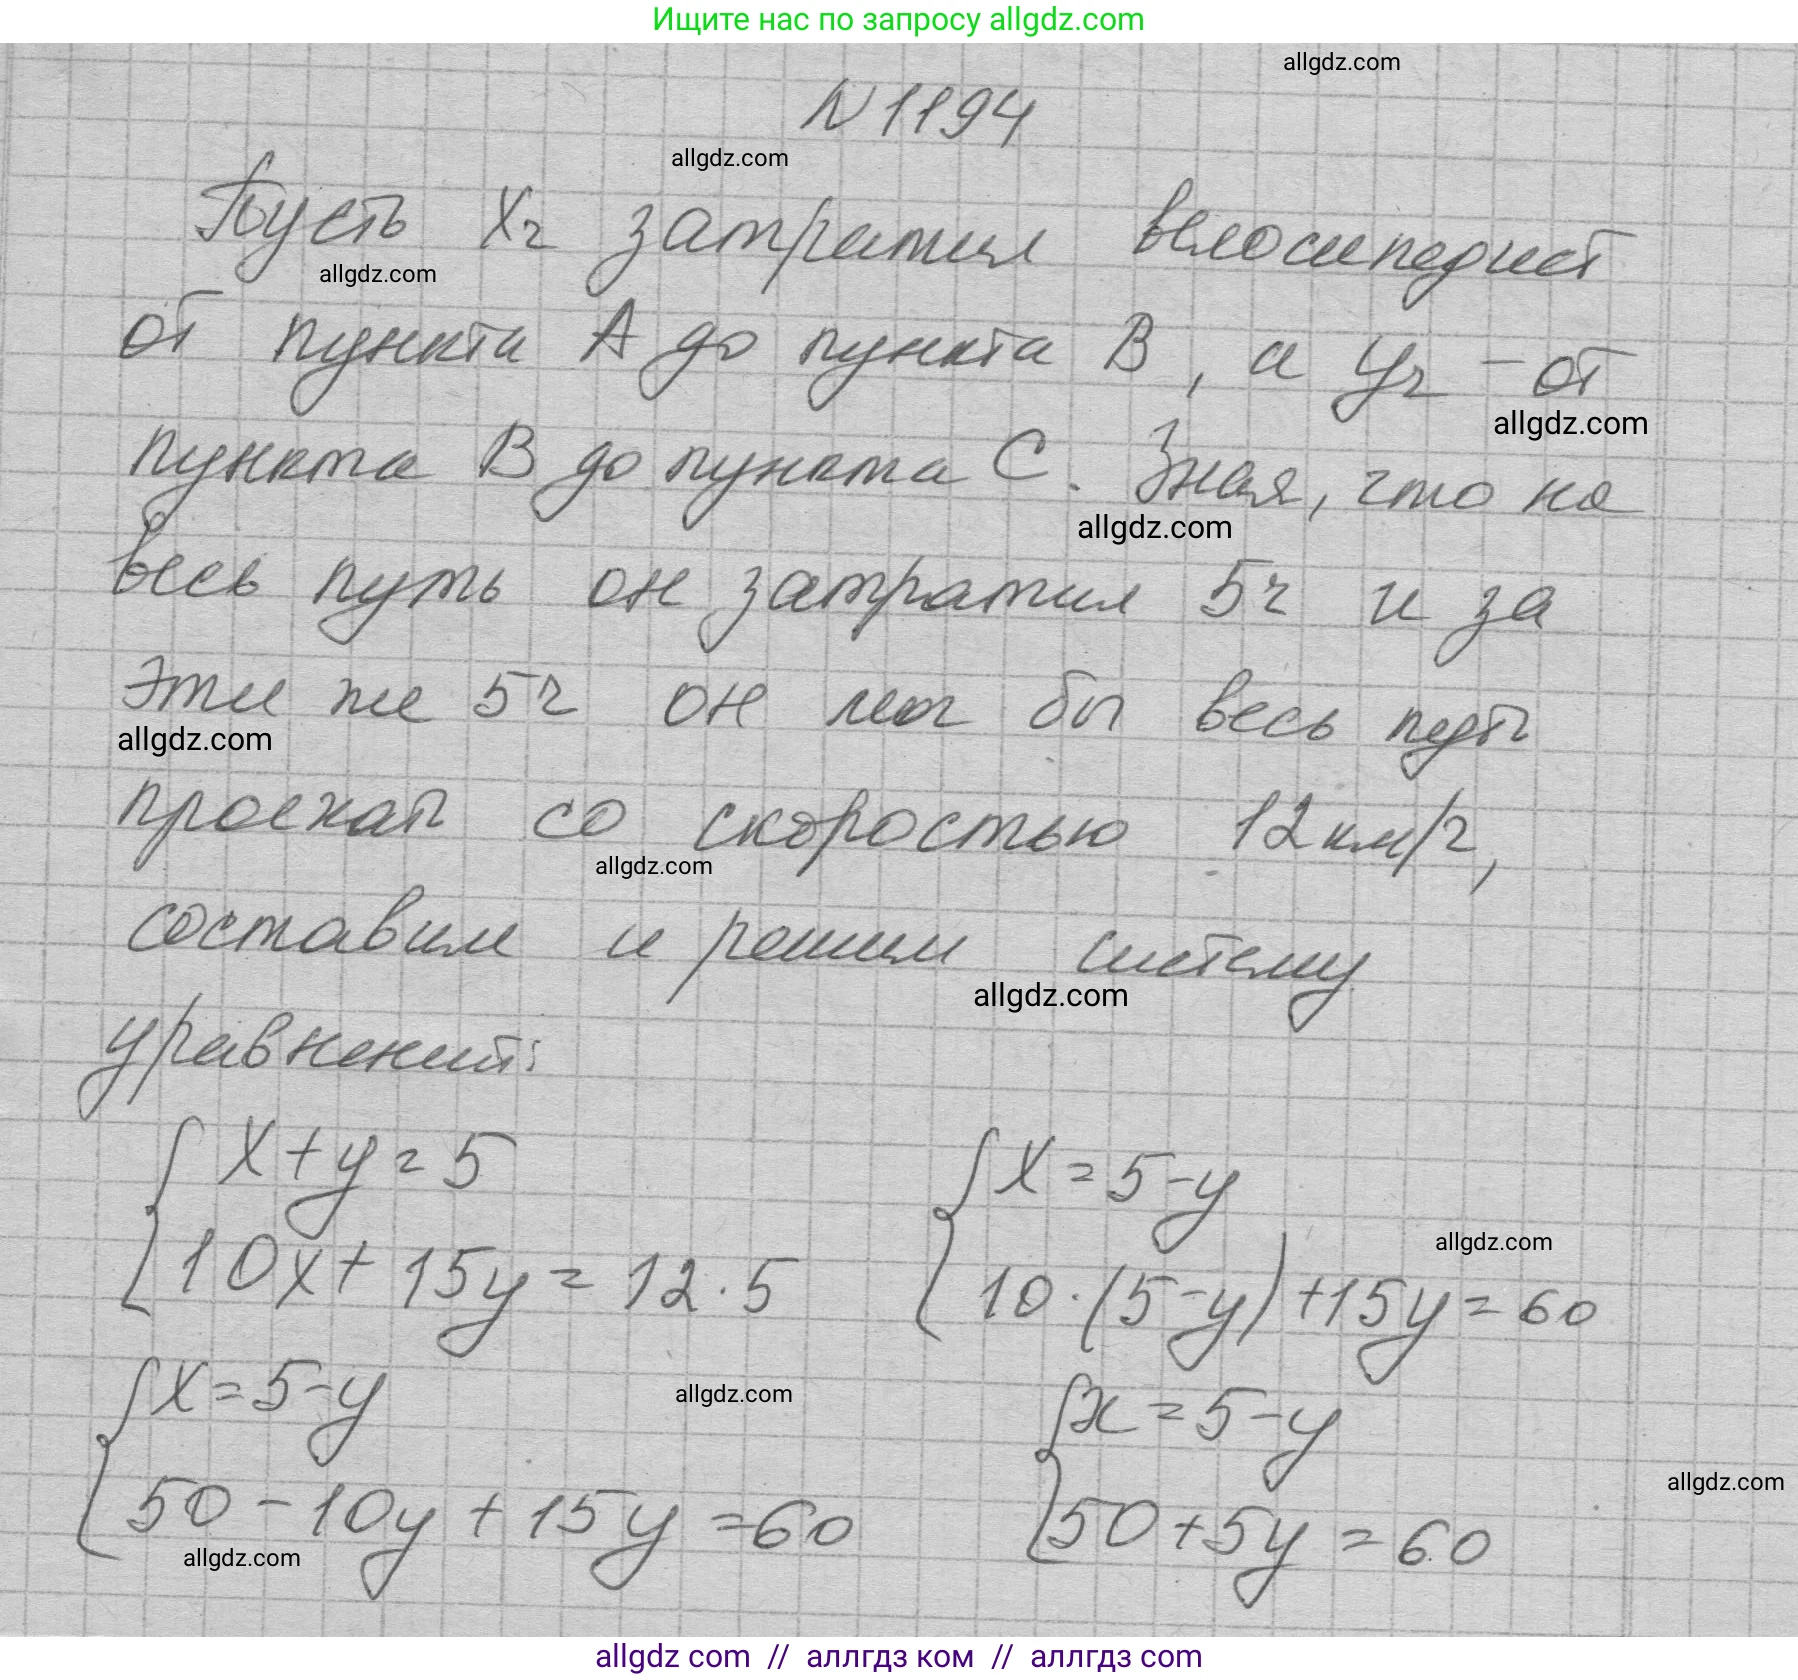 Ищите нас по запросу allgdz.com
allgdz.com
N 1194
allgdz.com
Пусть xч затратил велосипедист
allgdz.com
от пункта A до пункта B, а yч - от
allgdz.com
пункта B до пункта C. Зная, что на
allgdz.com
весь путь он затратил 5ч и за
эти же 5ч он мог бы весь путь
allgdz.com
проехать со скоростью 12км/ч,
allgdz.com
составим и решим систему
allgdz.com
уравнений:
{ x + y = 5 { x = 5 - y
allgdz.com
{ 10x + 15y = 12 · 5 { 10 · (5 - y) + 15y = 60
{ x = 5 - y allgdz.com { x = 5 - y
allgdz.com
{ 50 - 10y + 15y = 60 { 50 + 5y = 60
allgdz.com
allgdz com // аллгдз ком // allgdz com